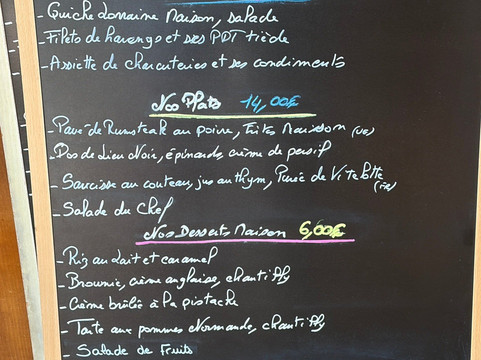 - Quiche Lorraine Maison, salade
- Filets de harengs et ses PDT tiède
- Assiette de charcuteries et ses condiments
Nos Plats 14,00€
- Pavé de Rumsteak au poivre, frites Maison (UE)
- Dos de Lieu Noir, épinards, crème de persil
- Saucisse au couteau, jus au thym, Purée de Vitelotte (FR)
- Salade du Chef
Nos Desserts Maison 6,00€
- Riz au lait et caramel
- Brownie, crème anglaise, chantilly
- Crème brûlée à la pistache
- Tarte aux pommes Normande, chantilly
- Salade de Fruits